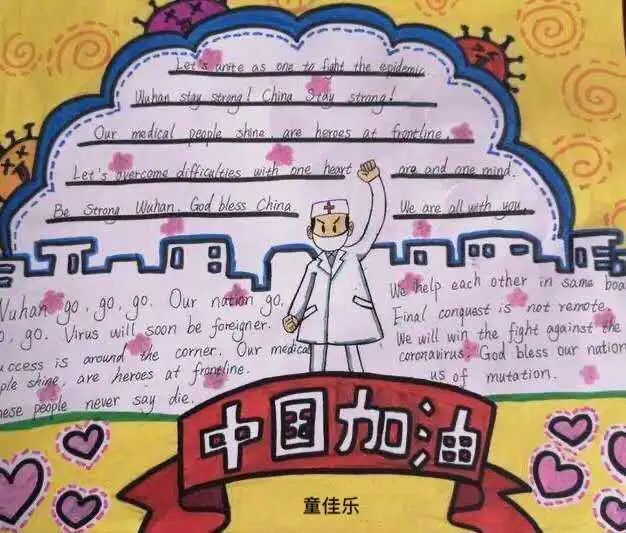 Let's unite as one to fight the epidemic
Wuhan stay strong! China stay strong!
Our medical people shine, are heroes at frontline.
Let's overcome difficulties with one heart are and one mind.
Be Strong Wuhan. God bless China We are all with you.
Wuhan go, go, go. Our nation go,
go. Virus will soon be foreigner.
uccess is around the corner. Our medical
ple shine, are heroes at frontline.
hese people never say die.
We help each other in same boa
Final conquest is not remote.
We will win the fight against the
coronavirus, God bless our nation
us of mutation.
中国加油
童佳乐